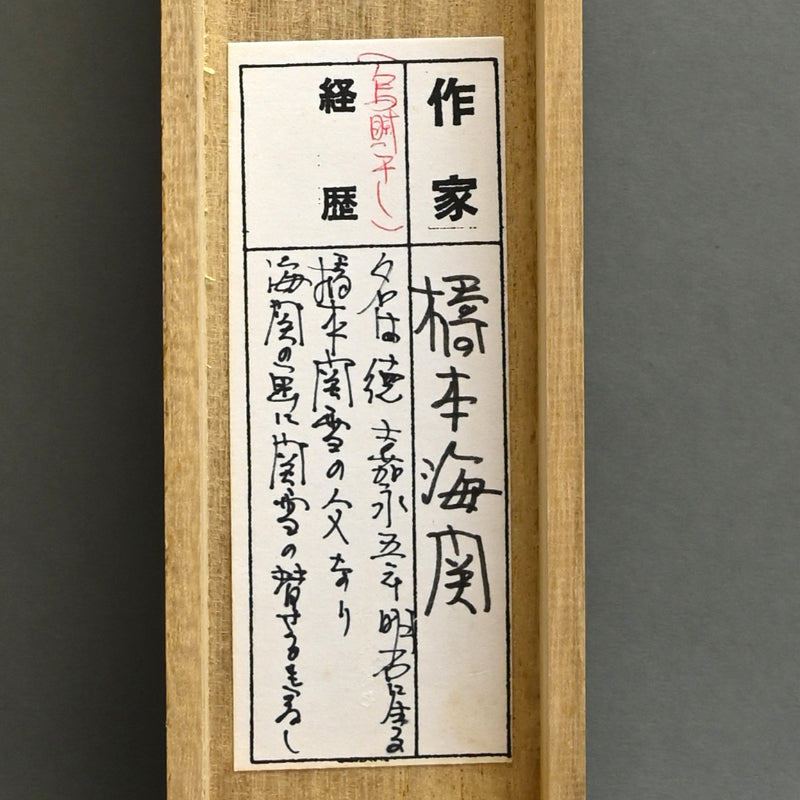 作家
橋本海関
(烏賊干し)
経歴
名は徳 嘉永五年明石生る
橋本関雪の父なり
海関の画に関雪の賛せる